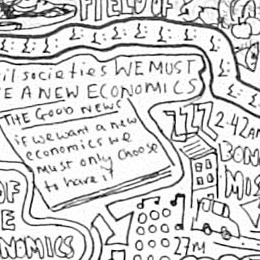 FIELD OF
il societies WE MUST
E A NEW ECONOMICS
THE GOOD NEWS
if we want a new
economics we
must only choose
to have it
ZZZ 2.42AM
BON
MIS
OF
E
NOMICS
27M